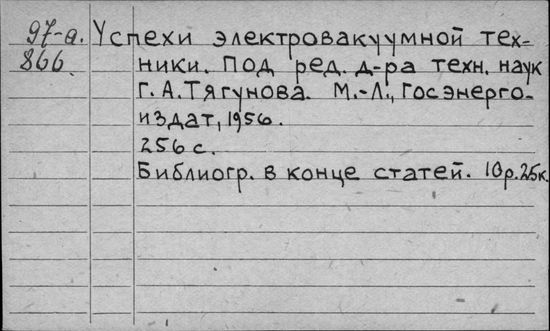 97-а. Успехи электровакуумной тех-
866. ники. Под ред. д-ра техн. наук
Г. А. Тягунова. М.-Л., Госэнерго-
издат, 1956.
256 с.
Библиогр. в конце статей. 10р.25к.